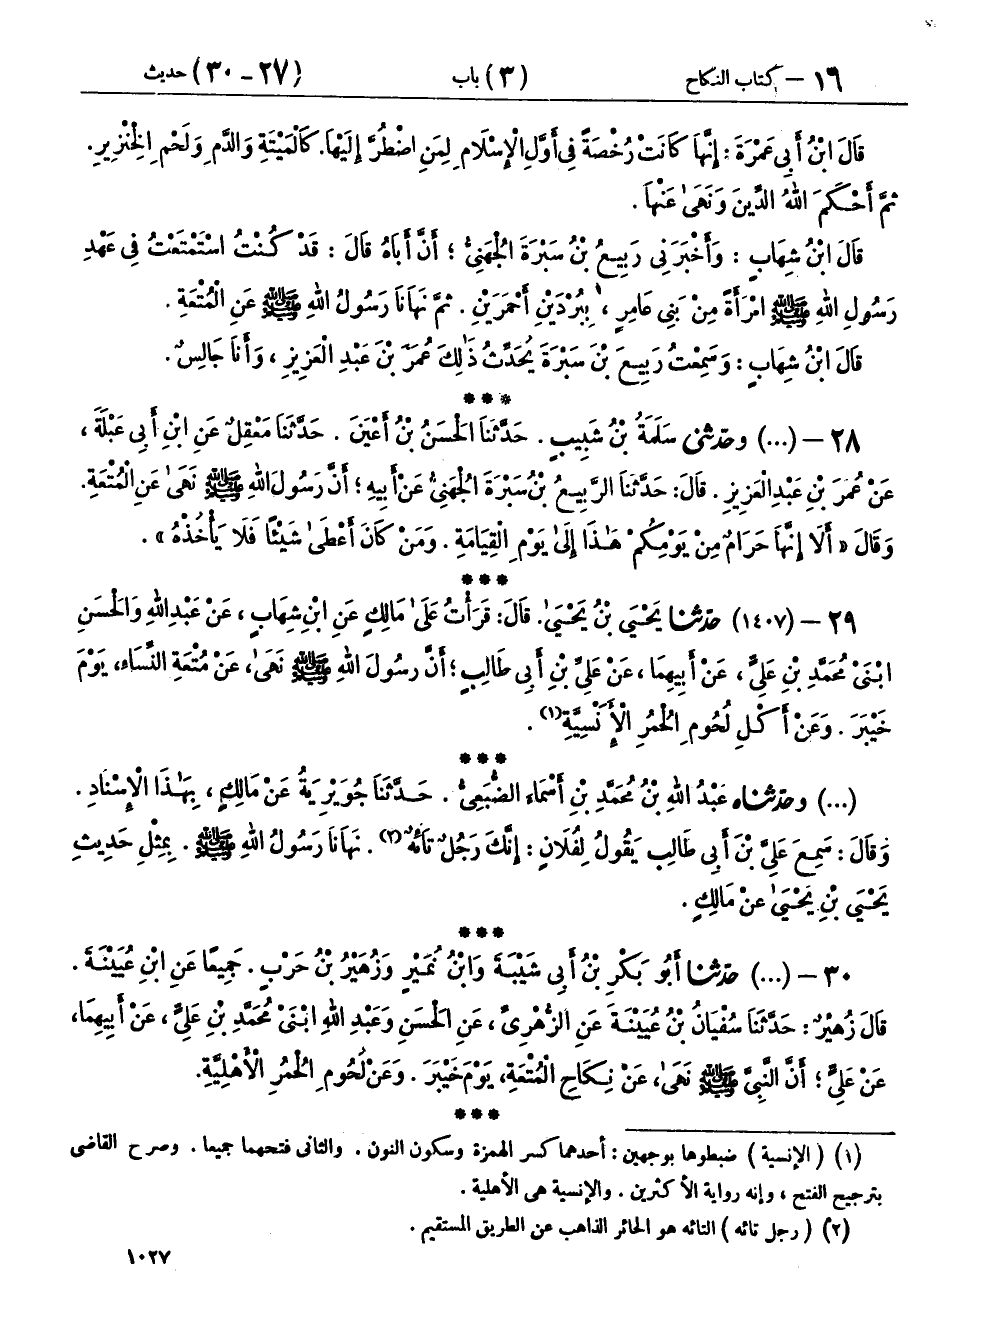 ١٦ – كتاب النكاح (٣) باب (٢٧ – ٣٠) حديث
قَالَ ابْنُ أَبِي عَمْرَةَ : إِنَّهَا كَانَتْ رُخْصَةً فِي أَوَّلِ الْإِسْلَامِ لِمَنِ اضْطُرَّ إِلَيْهَا. كَالْمَيْتَةِ وَالدَّمِ وَلَحْمِ الْخِنْزِيرِ.
ثُمَّ أَحْكَمَ اللهُ الدِّينَ وَنَهَىٰ عَنْهَا .
قَالَ ابْنُ شِهَابٍ : وَأَخْبَرَنِي رَبِيعُ بْنُ سَبْرَةَ الْجُهَنِيُّ ؛ أَنَّ أَبَاهُ قَالَ : قَدْ كُنْتُ اسْتَمْتَعْتُ فِي عَهْدِ
رَسُولِ اللهِ ﷺ امْرَأَةً مِنْ بَنِي عَامِرٍ ، بِبُرْدَيْنِ أَحْمَرَيْنِ . ثُمَّ نَهَانَا رَسُولُ اللهِ ﷺ عَنِ الْمُتْعَةِ .
قَالَ ابْنُ شِهَابٍ : وَسَمِعْتُ رَبِيعَ بْنَ سَبْرَةَ يُحَدِّثُ ذَٰلِكَ عُمَرَ بْنَ عَبْدِ الْعَزِيزِ ، وَأَنَا جَالِسٌ .
***
٢٨ – (...) وحَدَّثَنِي سَلَمَةُ بْنُ شَبِيبٍ . حَدَّثَنَا الْحَسَنُ بْنُ أَعْيَنَ . حَدَّثَنَا مَعْقِلٌ عَنِ ابْنِ أَبِي عَبْلَةَ ،
عَنْ عُمَرَ بْنِ عَبْدِ الْعَزِيزِ . قَالَ: حَدَّثَنَا الرَّبِيعُ بْنُ سَبْرَةَ الْجُهَنِيُّ عَنْ أَبِيهِ ؛ أَنَّ رَسُولَ اللهِ ﷺ نَهَىٰ عَنِ الْمُتْعَةِ.
وَقَالَ « أَلَا إِنَّهَا حَرَامٌ مِنْ يَوْمِكُمْ هَٰذَا إِلَىٰ يَوْمِ الْقِيَامَةِ . وَمَنْ كَانَ أَعْطَىٰ شَيْئًا فَلَا يَأْخُذْهُ » .
***
٢٩ – (١٤٠٧) حَدَّثَنَا يَحْيَىٰ بْنُ يَحْيَىٰ. قَالَ: قَرَأْتُ عَلَىٰ مَالِكٍ عَنِ ابْنِ شِهَابٍ ، عَنْ عَبْدِ اللهِ وَالْحَسَنِ
ابْنَيْ مُحَمَّدِ بْنِ عَلِيٍّ ، عَنْ أَبِيهِمَا ، عَنْ عَلِيِّ بْنِ أَبِي طَالِبٍ ؛ أَنَّ رَسُولَ اللهِ ﷺ نَهَىٰ، عَنْ مُتْعَةِ النِّسَاءِ، يَوْمَ
خَيْبَرَ . وَعَنْ أَكْلِ لُحُومِ الْحُمُرِ الْأَنَسِيَّةِ(١) .
***
(...) وحَدَّثَنَاه عَبْدُ اللهِ بْنُ مُحَمَّدِ بْنِ أَسْمَاءَ الضُّبَعِيُّ . حَدَّثَنَا جُوَيْرِيَةُ عَنْ مَالِكٍ ، بِهَٰذَا الْإِسْنَادِ .
وَقَالَ : سَمِعَ عَلِيَّ بْنَ أَبِي طَالِبٍ يَقُولُ لِفُلَانٍ : إِنَّكَ رَجُلٌ تَائِهٌ(٢) . نَهَانَا رَسُولُ اللهِ ﷺ . بِمِثْلِ حَدِيثِ
يَحْيَىٰ بْنِ يَحْيَىٰ عَنْ مَالِكٍ .
***
٣٠ – (...) حَدَّثَنَا أَبُو بَكْرِ بْنُ أَبِي شَيْبَةَ وَابْنُ نُمَيْرٍ وَزُهَيْرُ بْنُ حَرْبٍ . جَمِيعًا عَنِ ابْنِ عُيَيْنَةَ .
قَالَ زُهَيْرٌ : حَدَّثَنَا سُفْيَانُ بْنُ عُيَيْنَةَ عَنِ الزُّهْرِيِّ ، عَنِ الْحَسَنِ وَعَبْدِ اللهِ ابْنَيْ مُحَمَّدِ بْنِ عَلِيٍّ ، عَنْ أَبِيهِمَا،
عَنْ عَلِيٍّ ؛ أَنَّ النَّبِيَّ ﷺ نَهَىٰ، عَنْ نِكَاحِ الْمُتْعَةِ، يَوْمَ خَيْبَرَ . وَعَنْ لُحُومِ الْحُمُرِ الْأَهْلِيَّةِ.
***
(١) ( الإنسية ) ضبطوها بوجهين : أحدهما كسر الهمزة وسكون النون . والثانى فتحهما جميعا . وصرح القاضى
بترجيح الفتح ، وإنه رواية الأكثرين . والإنسية هى الأهلية .
(٢) ( رجل تائه ) التائه هو الحائر الذاهب عن الطريق المستقيم .
١٠٢٧